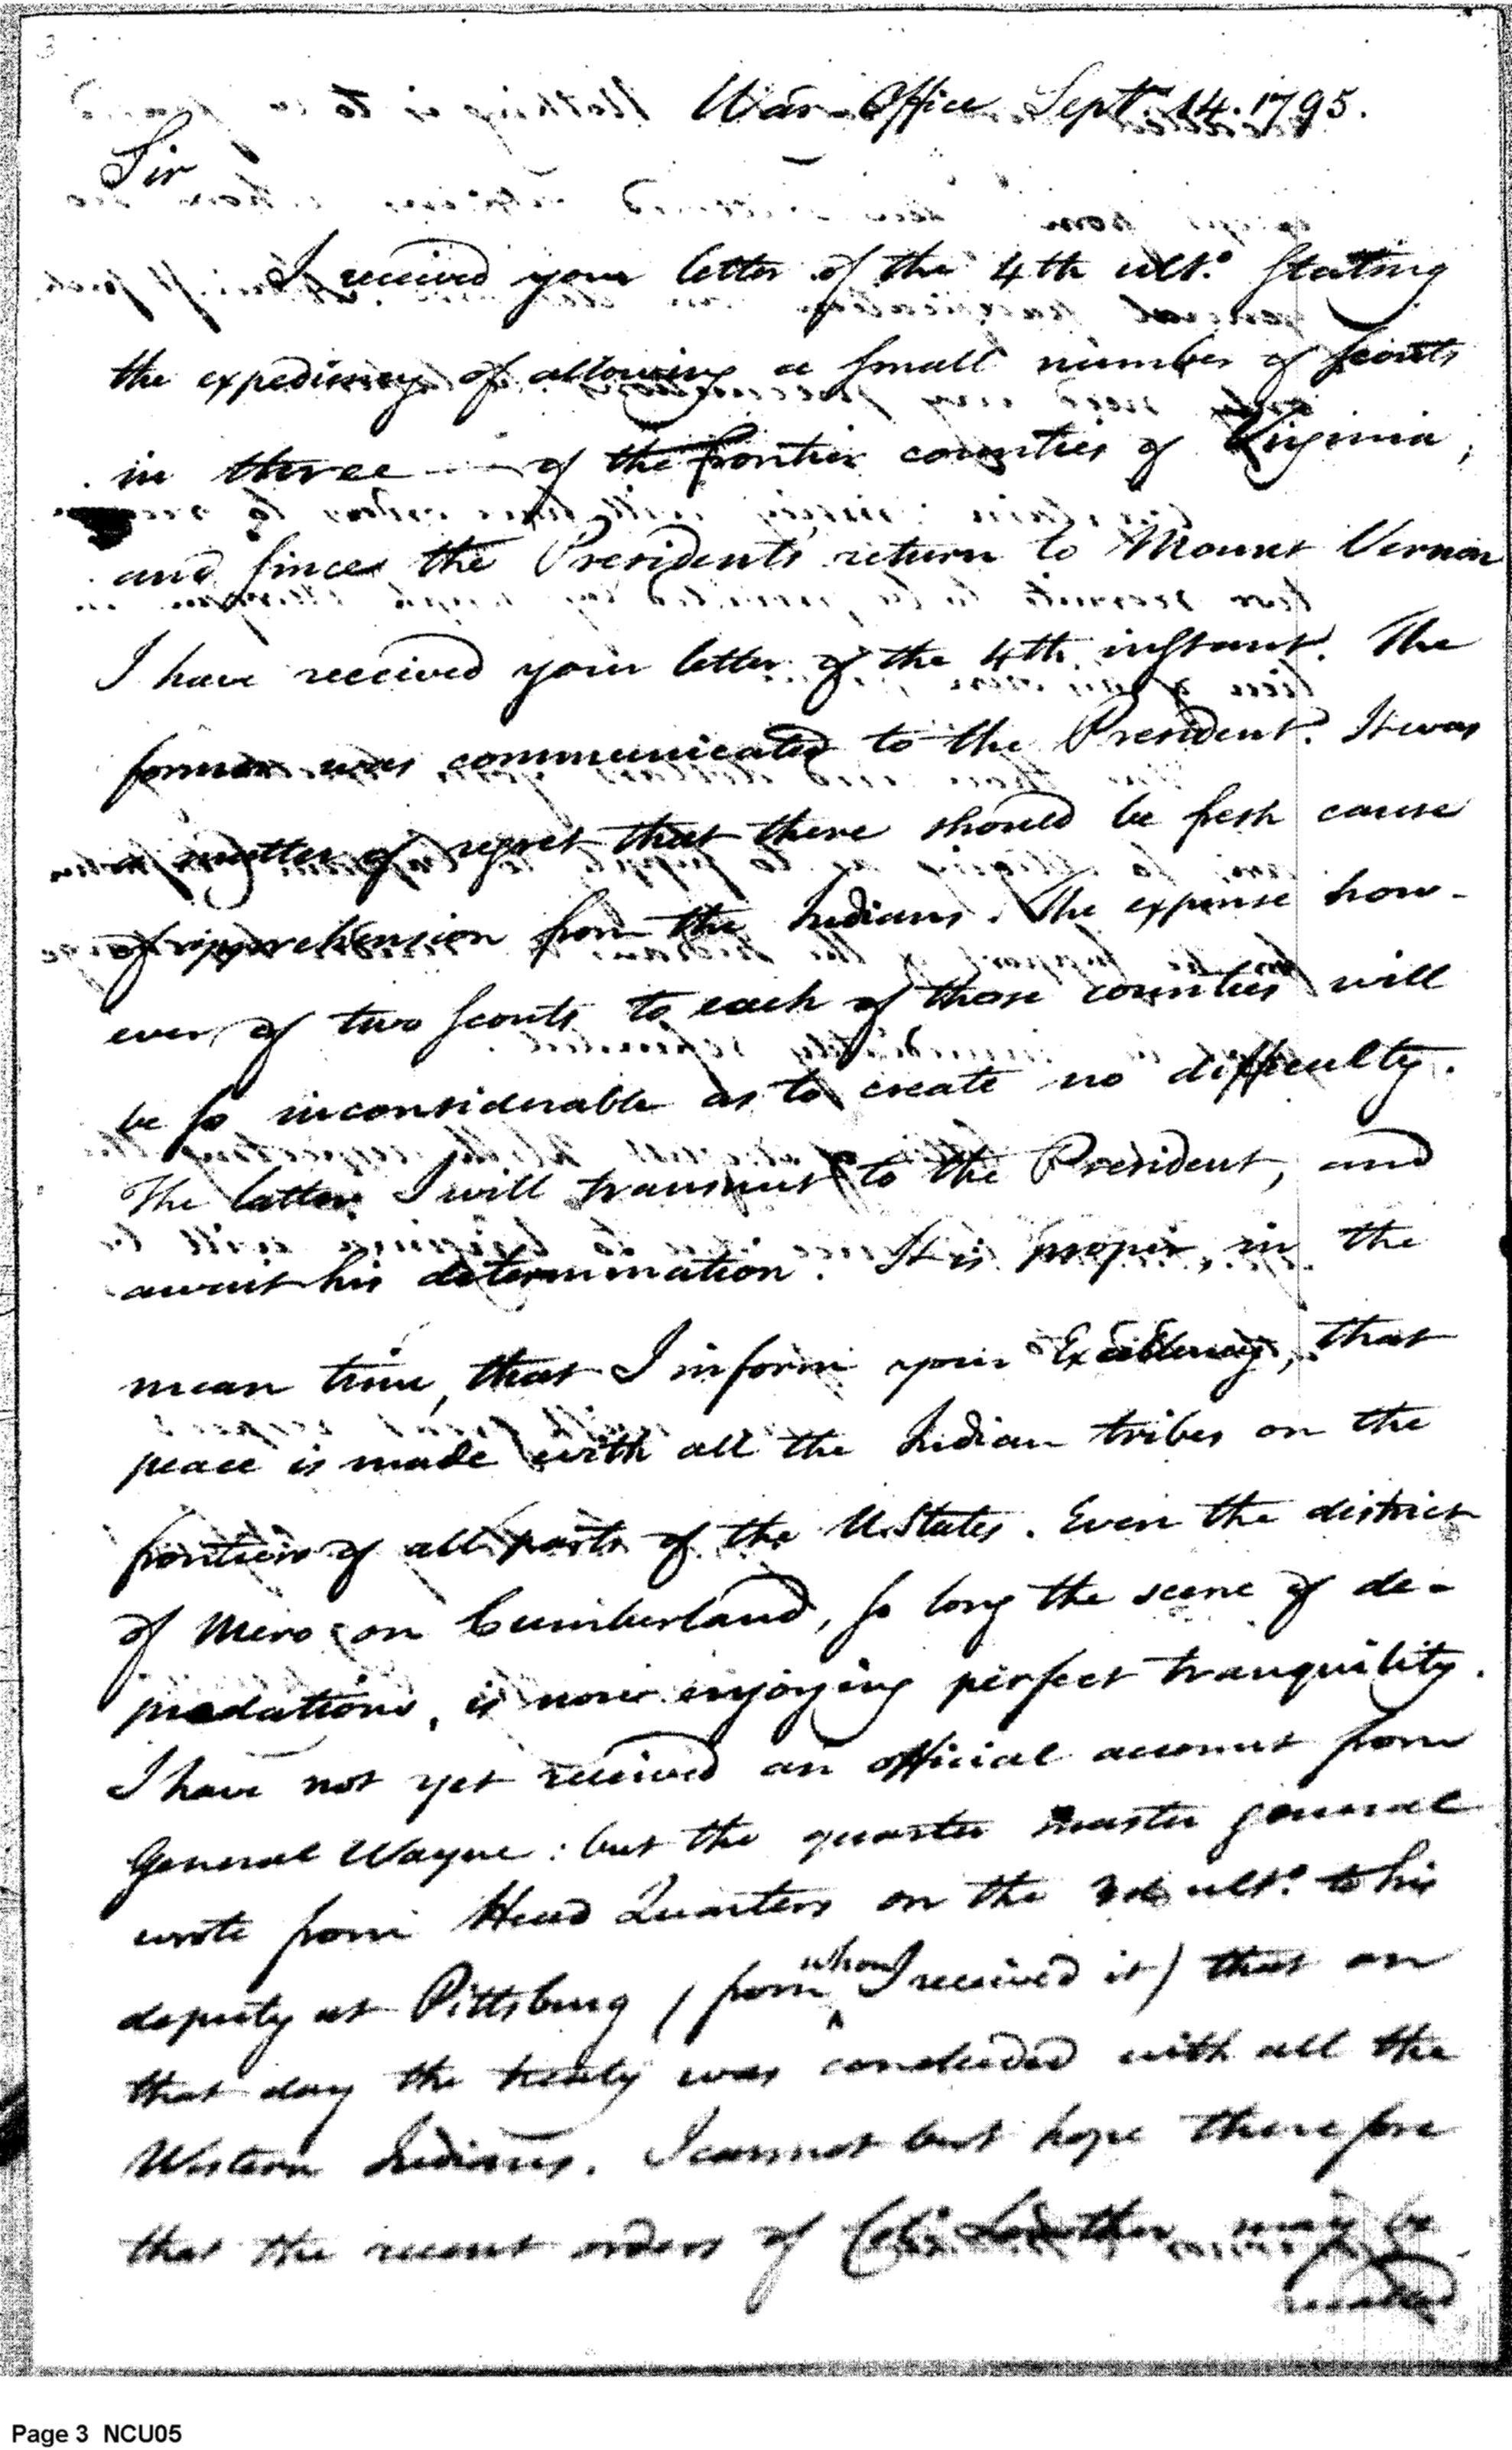 3
War Office Sept. 14. 1795.
Sir
I received your letter of the 4th ulto. stating
the expediency of allowing a small number of scouts
in three of the frontier counties of Virginia;
and since the Presidents return to Mount Vernon
I have received your letter of the 4th instant. The
former was communicated to the President. It was
a matter of regret that there should be fresh cause
of apprehension from the Indians. The expense how-
ever, of two scouts to each of those counties will
be so inconsiderable as to create no difficulty.
The latter I will transmit to the President, and
await his determination. It is proper, in the
mean time, that I inform your Excellency, that
peace is made with all the Indian tribes on the
frontiers of all parts of the U. States. Even the district
of Mero on Cumberland, so long the scene of de-
predations, is now enjoying perfect tranquility.
I have not yet received an official account from
General Wayne: but the quarter master general
wrote from Head Quarters on the 3d ulto. to his
deputy at Pittsburg (from whom I received it) that on
that day the treaty was concluded with all the
Western Indians. I cannot but hope therefore
that the recent orders of Colo. Lowther may be
recalled
Page 3 NCU05